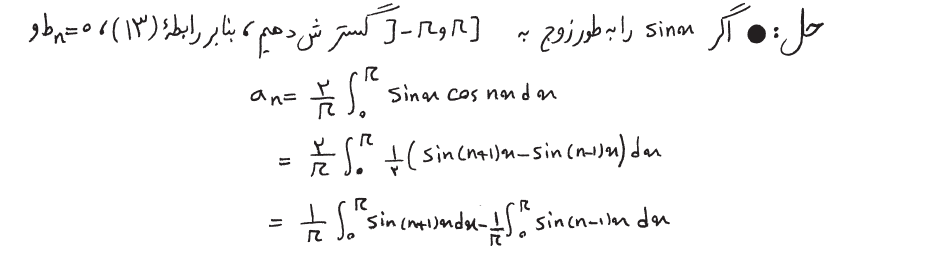 حل: ● اگر sin x را به طور زوج به [-π و π] گسترش دهیم، بنابر رابطهٔ (۱۳)، bn=۰ و
an = ۲/π ∫₀^π sin x cos nx dx
= ۲/π ∫₀^π ۱/۲ (sin(n+1)x - sin(n-1)x) dx
= ۱/π ∫₀^π sin(n+1)x dx - ۱/π ∫₀^π sin(n-1)x dx